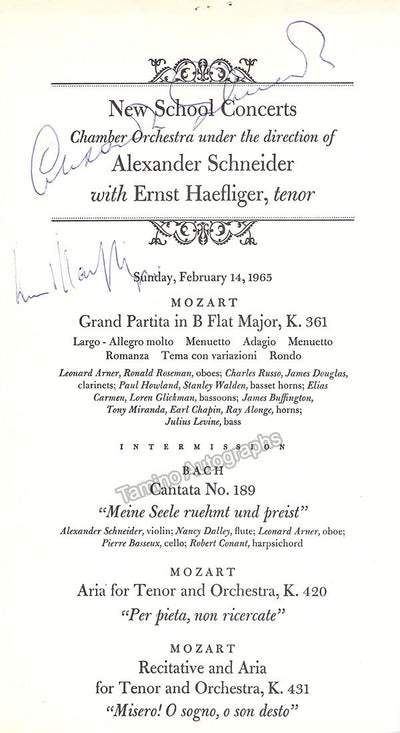 New School Concerts
Chamber Orchestra under the direction of
Alexander Schneider
with Ernst Haefliger, tenor
Sunday, February 14, 1965
MOZART
Grand Partita in B Flat Major, K. 361
Largo - Allegro molto Menuetto Adagio Menuetto
Romanza Tema con variazioni Rondo
Leonard Arner, Ronald Roseman, oboes; Charles Russo, James Douglas,
clarinets; Paul Howland, Stanley Walden, basset horns; Elias
Carmen, Loren Glickman, bassoons; James Buffington,
Tony Miranda, Earl Chapin, Ray Alonge, horns;
Julius Levine, bass
INTERMISSION
Tamino Autographs
BACH
Cantata No. 189
"Meine Seele ruehmt und preist"
Alexander Schneider, violin; Nancy Dalley, flute; Leonard Arner, oboe;
Pierre Basseux, cello; Robert Conant, harpsichord
MOZART
Aria for Tenor and Orchestra, K. 420
"Per pieta, non ricercate"
MOZART
Recitative and Aria
for Tenor and Orchestra, K. 431
"Misero! O sogno, o son desto"